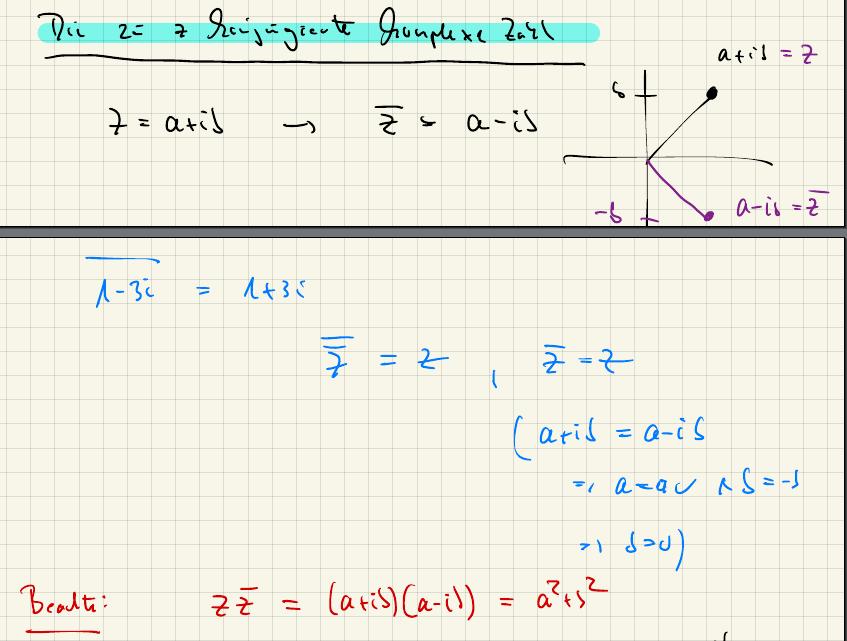 Die zu z konjugierte komplexe Zahl
a+ib = z
b
z = a+ib → z̅ = a-ib
-b
a-ib = z̅
\overline{1-3i} = 1+3i
z̿ = z , z̅ = z
(a+ib = a-ib
⇒ a=a ✓ ∧ b=-b
⇒ b=0)
Beachte: z z̅ = (a+ib)(a-ib) = a²+b²